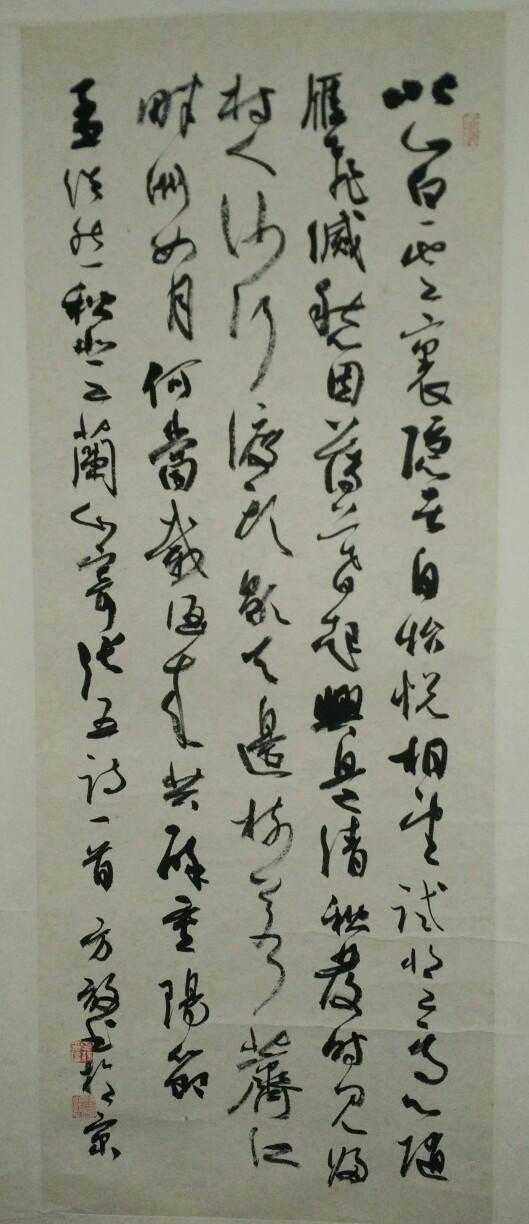 北山白雲裏隱者自怡悅相望試登高心隨
雁飛滅愁因薄暮起興是清秋發時見歸
村人沙行渡頭歇天邊樹若薺江
畔洲如月何當載酒來共醉重陽節
孟浩然秋登蘭山寄張五詩一首 方書於京